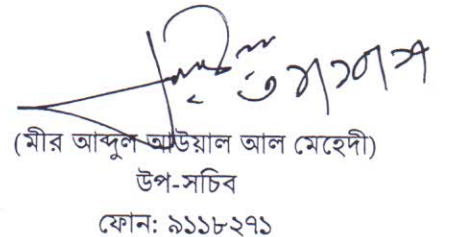 (মীর আব্দুল আউয়াল আল মেহেদী)
উপ-সচিব
ফোন: ৯১১৮২৭১